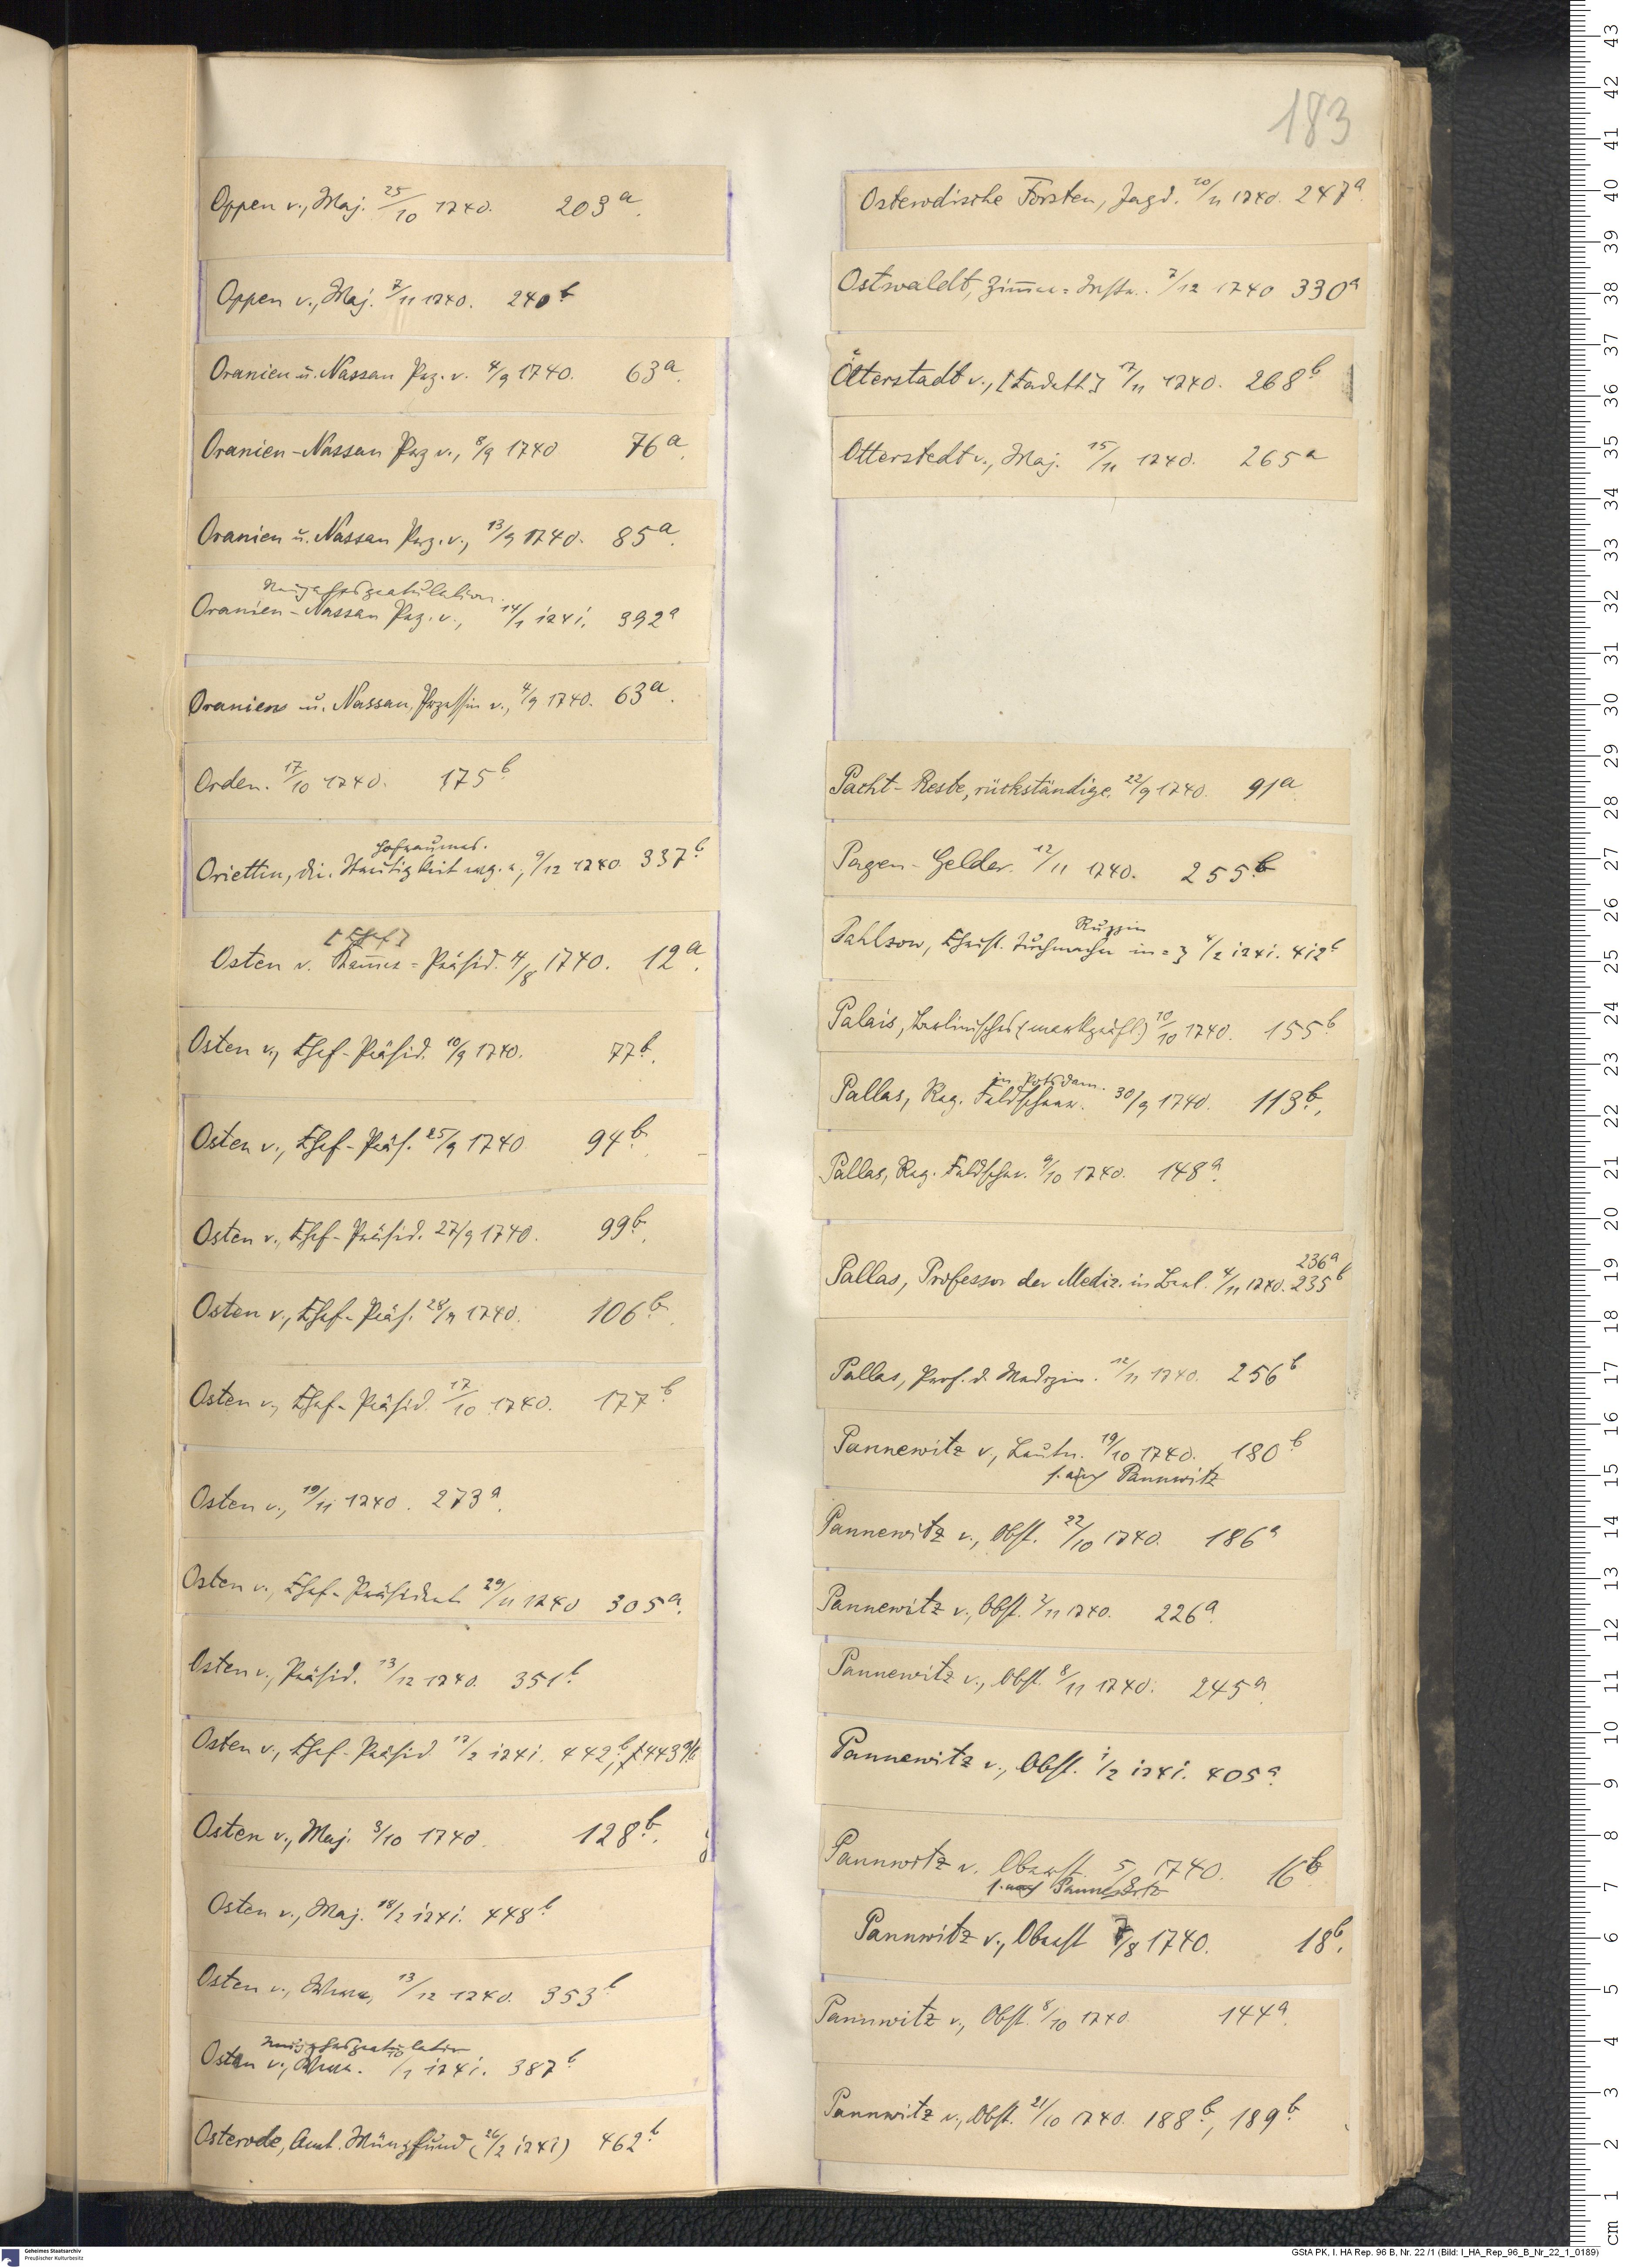 183
Oppen v., Maj. 25/10 1740. 203a.
Oppen v., Maj. 7/11 1740. 240b
Oranien u. Nassau Prz. v. 4/9 1740. 63a.
Oranien-Nassau Prz v., 8/9 1740 76a.
Oranien u. Nassau Prz. v., 13/9 1740. 85a.
Neujahrsgratulation.
Oranien-Nassau Prz. v., 14/1 1741. 392a
Oranien u. Nassau, Przessin v., 4/9 1740. 63a.
Orden. 17/10 1740. 175b
Oriettin, die. 9/12 1740. 337b
[Chef]
Osten v. Kammer-Präsid. 4/8 1740. 12a.
Osten v., Chef-Präsid. 10/9 1740. 77b.
Osten v., Chef-Präs. 25/9 1740 94b.
Osten v., Chef-Präsid. 27/9 1740. 99b.
Osten v., Chef-Präs. 28/9 1740. 106b.
Osten v., Chef-Präsid. 17/10 1740. 177b
Osten v., 19/11 1740. 273a.
Osten v., Chef-Präsident 29/11 1740 305a.
Osten v., Präsid. 13/12 1740. 351b
Osten v., Chef-Präsid 17/2 1741. 442b, 443a/b
Osten v., Maj. 3/10 1740. 128b.
Osten v., Maj. 18/2 1741. 448b
Osten v., 13/12 1740. 353b
Neujahrsgratulation
Osten v., 10/1 1741. 387b
Osterode, Amt. Münzfund (26/2 1741) 462b
Osterodische Forsten, Jagd. 10/11 1740. 247a.
Ostwaldt, Zimmer-Mstr. 7/12 1740 330a
Otterstadt v., [Kadett] 17/11 1740. 268b
Otterstedt v., Maj. 15/11 1740. 265a
Pacht-Reste, rückständige. 22/9 1740. 91a
Pagen-Gelder. 12/11 1740. 255b
Ruppin
Pahlzow, Christ. Tuchmacher in = } 4/2 1741. 412b
Palais, Berlinisches (markgräfl) 10/10 1740. 155b
in Potsdam.
Pallas, Reg. Feldscheer. 30/9 1740. 113b.
Pallas, Reg. Feldscher. 9/10 1740. 148a.
236a
Pallas, Professor der Mediz. in Berl. 4/11 1740. 235b
Pallas, Prof. d. Medizin. 12/11 1740. 256b
Pannewitz v., Leutn. 19/10 1740. 180b
s. auch Pannwitz
Pannewitz v., Obst. 22/10 1740. 186a
Pannewitz v., Obst. 2/11 1740. 226a.
Pannewitz v., Obst. 8/11 1740. 245a.
Pannewitz v., Obst. 1/2 1741. 405a.
Pannwitz v. Oberst 5/8 1740. 16b
s. auch Pannewitz
Pannwitz v., Oberst 7/8 1740. 18b.
Pannwitz v., Obst. 8/10 1740. 144a.
Pannwitz v., Obst. 21/10 1740. 188b, 189b.
Geheimes Staatsarchiv
Preußischer Kulturbesitz
GStA PK, I. HA Rep. 96 B, Nr. 22 /1 (Bild: I_HA_Rep_96_B_Nr_22_1_0189)
43
42
41
40
39
38
37
36
35
34
33
32
31
30
29
28
27
26
25
24
23
22
21
20
19
18
17
16
15
14
13
12
11
10
9
8
7
6
5
4
3
2
1
cm